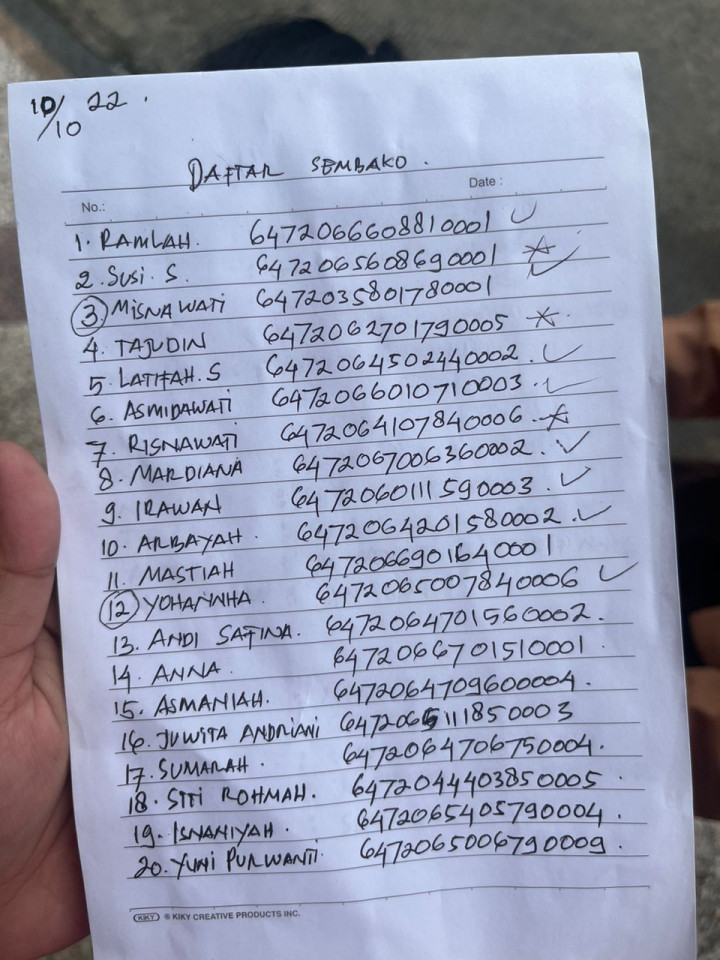 10/10 22.
DAFTAR SEMBAKO.
No.: Date :
1. RAMLAH. 6472066608810001 ✓
2. SUSI. S. 6472065608690001 ✓
3 MISNAWATI 6472035801780001
4. TAJUDIN 6472062701790005
5. LATIFAH. S 6472064502440002. ✓
6. ASMIDAWATI 6472066010710003. ✓
7. RISNAWATI 6472064107840006.
8. MARDIANA 6472067006360002. ✓
9. IRAWAN 6472060111590003. ✓
10. ARBAYAH. 6472064201580002. ✓
11. MASTIAH 6472066901640001
12 YOHANNHA. 6472065007840006 ✓
13. ANDI SATINA. 6472064701560002.
14. ANNA. 6472066701510001.
15. ASMANIAH. 6472064709600004.
16. JUWITA ANDRIANI 6472065111850003
17. SUMARAH. 6472064706750004.
18. SITI ROHMAH. 6472044403850005.
19. ISNANIYAH. 6472065405790004.
20. YUNI PURWANTI. 6472065006790009.
KIKY © KIKY CREATIVE PRODUCTS INC.